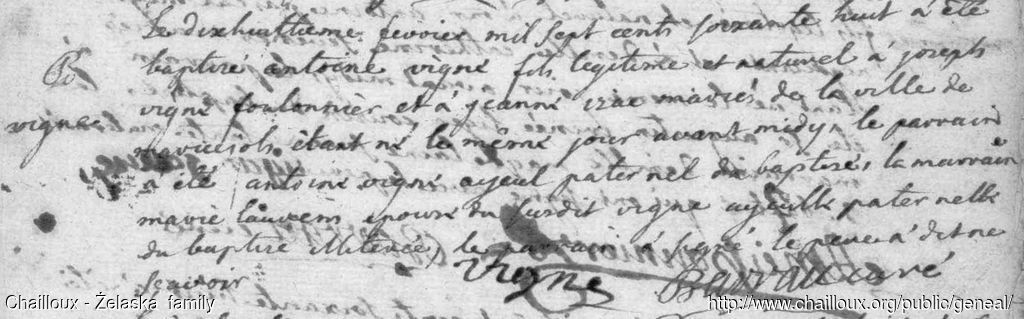 le dixhuitieme fevrier mil sept cents soixante huit a été
B
baptizé antoine vigné fils legitime et naturel à joseph
vigne
vigné foulonnier et à jeanné izar mariés de la ville de
étant né le même jour avant midy, le parrain
a été antoine vigné ayeul paternel du baptizés, la marrain
marie lauvens epouse du susdit vigne ayeulle paternelle
du baptizé illiterée, le parrain a signé le pere a dit ne
scavoir
Vigne curé
Chailloux - Żelaska family
http://www.chailloux.org/public/geneal/